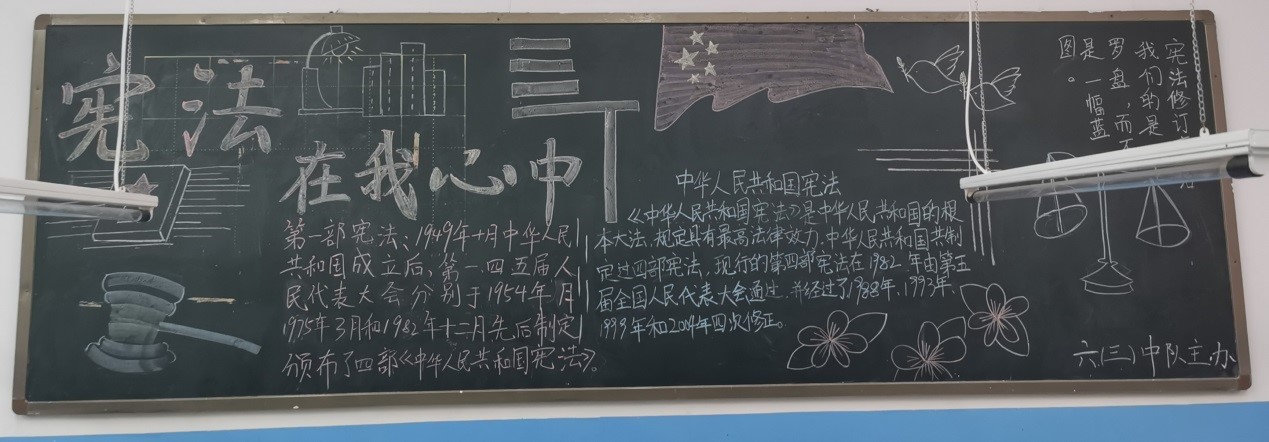 宪法
在我心中
第一部宪法、1949年十月中华人民
共和国成立后、第一四五届人
民代表大会分别于1954年 月
1975年3月和1982年十二月先后制定
颁布了四部《中华人民共和国宪法》。
中华人民共和国宪法
《中华人民共和国宪法》是中华人民共和国的根
本大法,规定具有最高法律效力.中华人民共和国共制
定过四部宪法,现行的第四部宪法在1982年由第五
届全国人民代表大会通过,并经过了1988年、1993年、
1999年和2004年四次修正。
宪法修订
我们的是
罗盘,而不
是一幅蓝
图。
六(三)中队主办